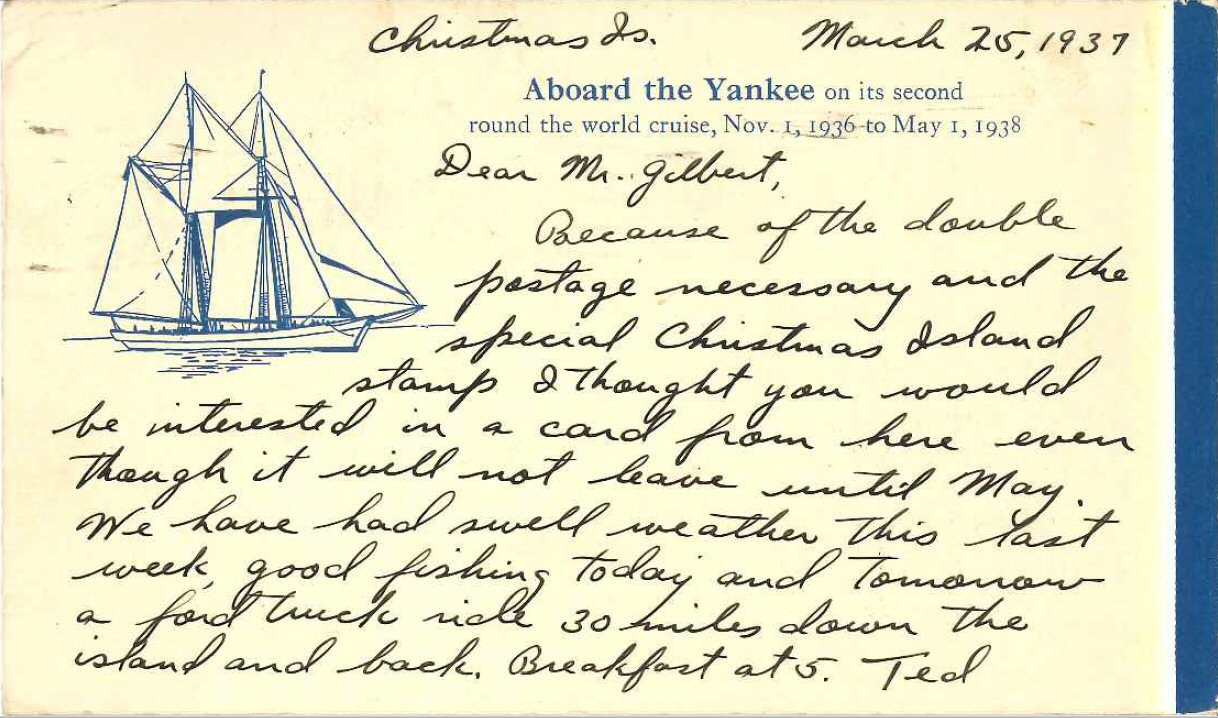 Christmas Is. March 25, 1937
Aboard the Yankee on its second
round the world cruise, Nov. 1, 1936 to May 1, 1938
Dear Mr. Gilbert,
Because of the double
postage necessary and the
special Christmas Island
stamp I thought you would
be interested in a card from here even
though it will not leave until May.
We have had swell weather this last
week, good fishing today and tomorrow
a ford truck ride 30 miles down the
island and back. Breakfast at 5. Ted